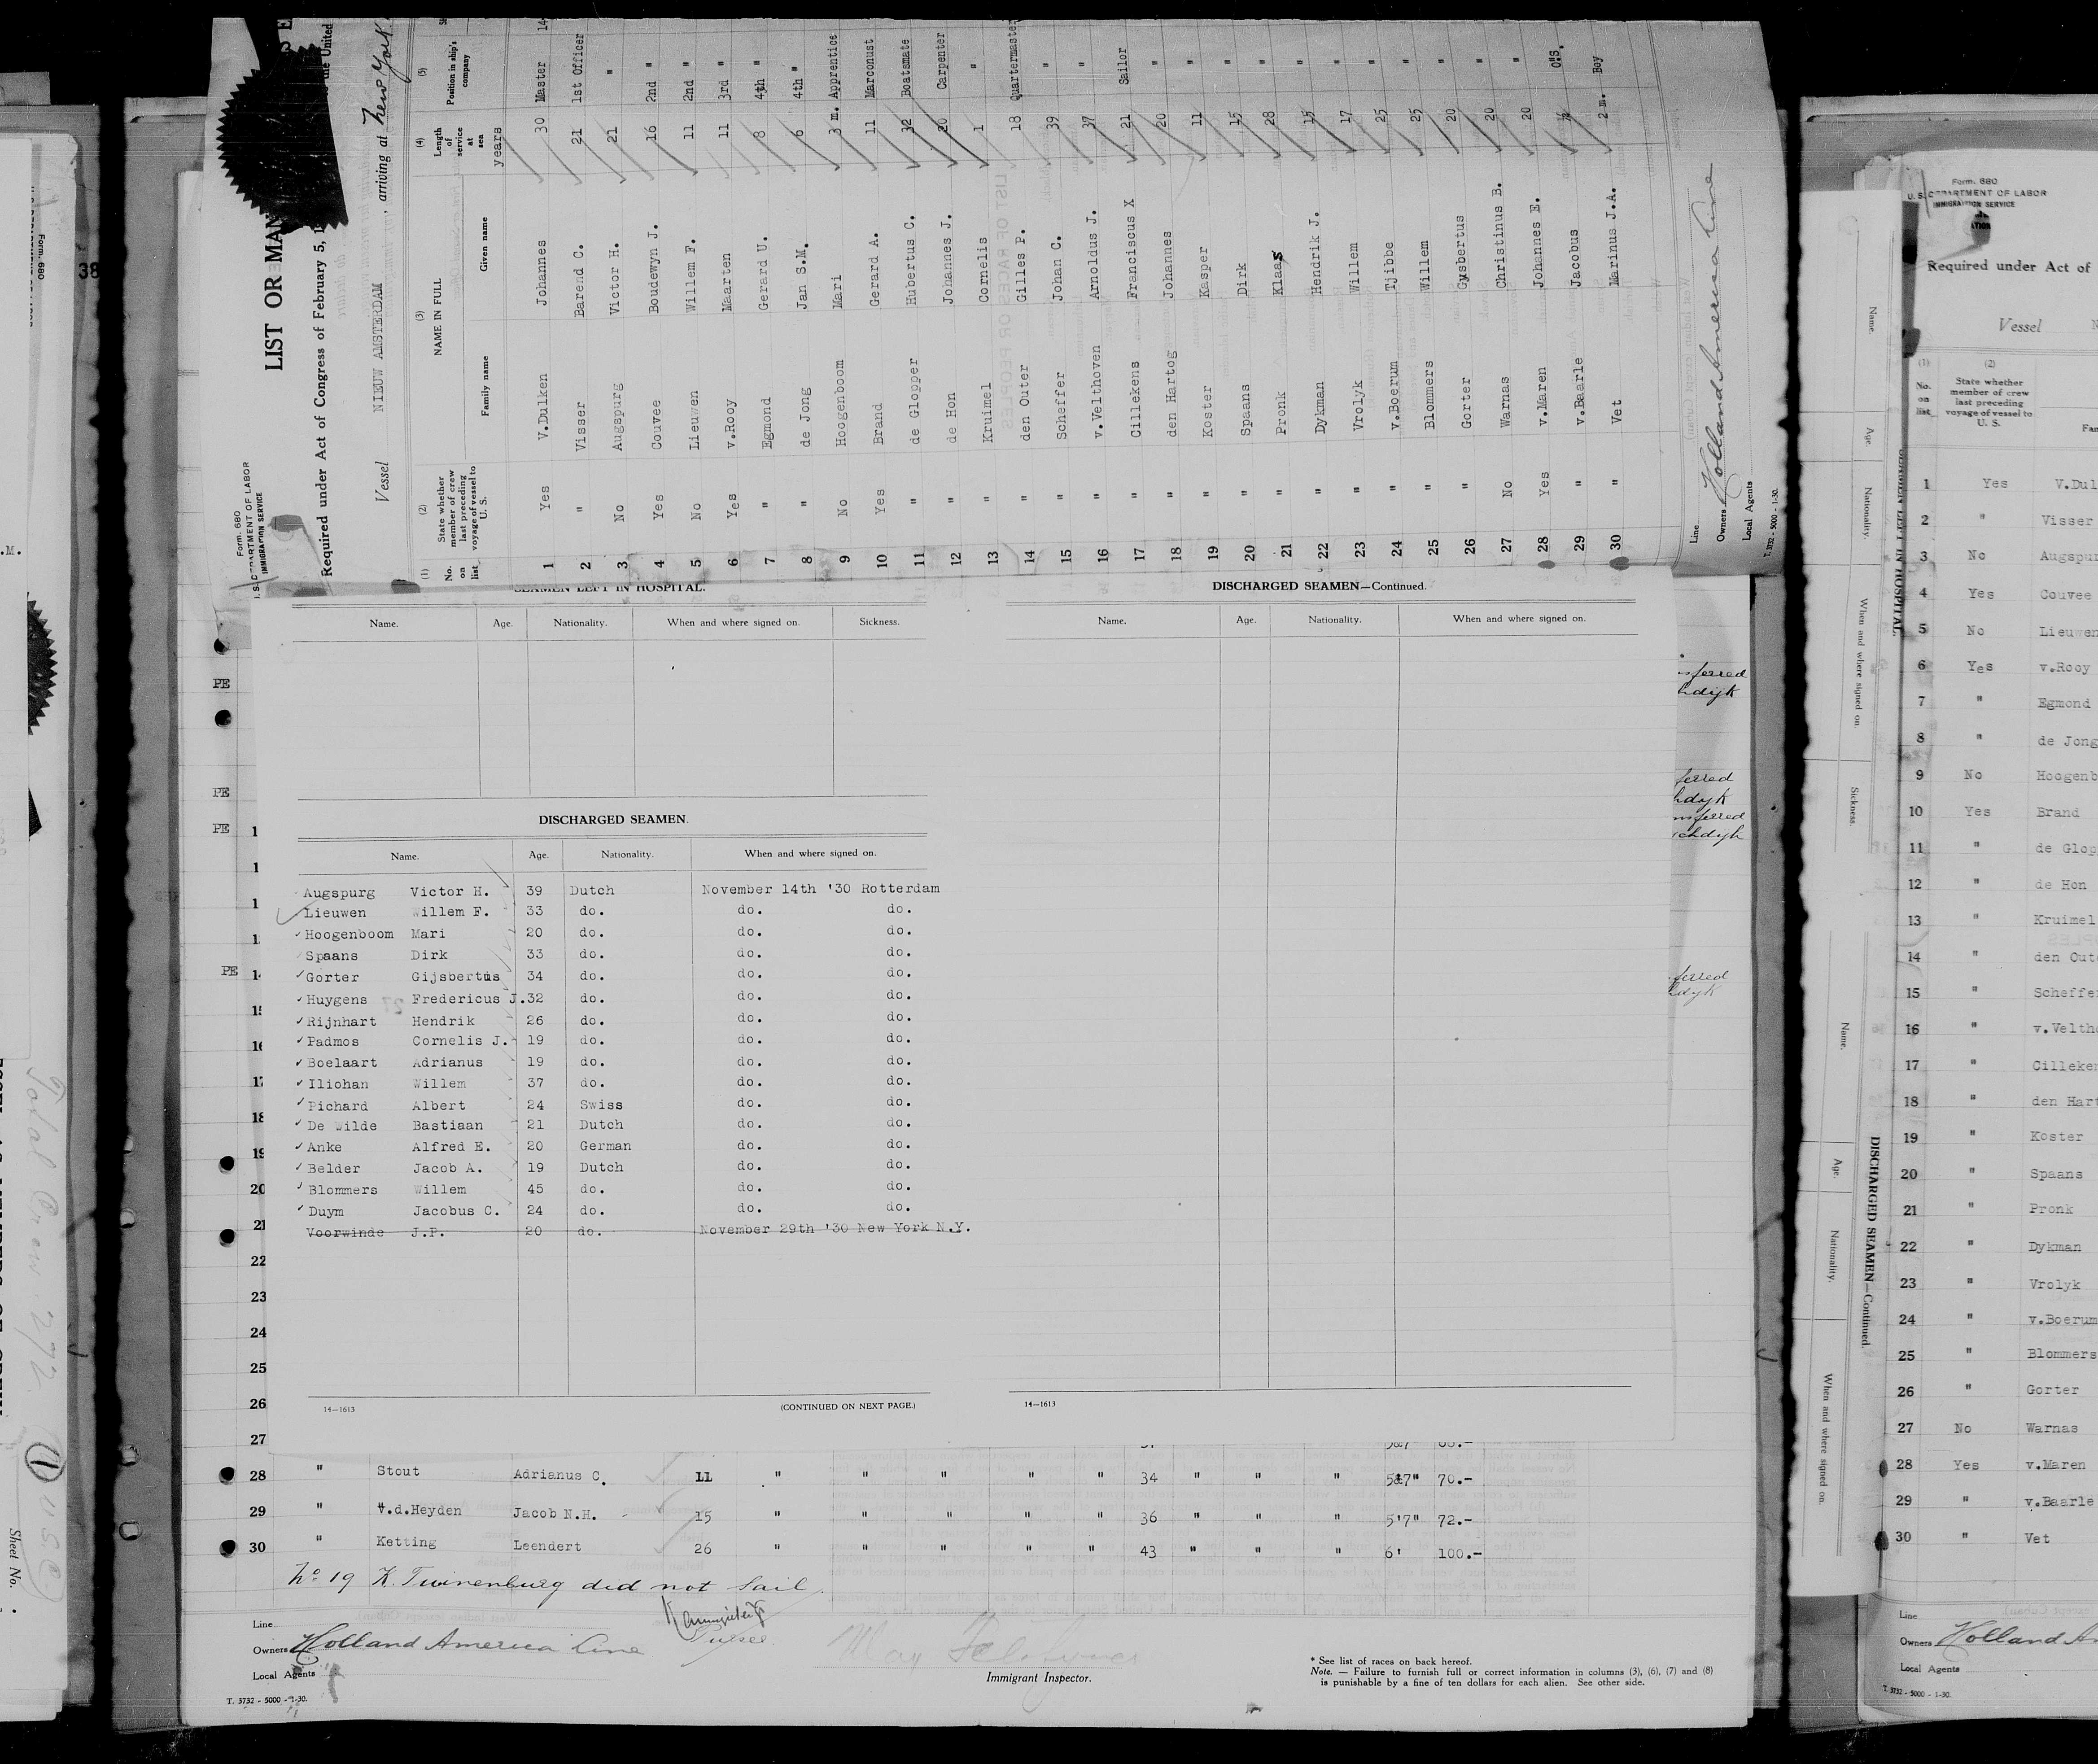 Form. 680
U. S. DEPARTMENT OF LABOR
IMMIGRATION SERVICE
LIST OR MAN
Required under Act of Congress of February 5, 1
the United
Vessel NIEUW AMSTERDAM , arriving at New York
(1) (2) (3) (4) (5)
No. on list
State whether member of crew last preceding voyage of vessel to U. S.
NAME IN FULL
Family name Given name
Length of service at sea
years
Position in ship's company
1 Yes V.Dulken Johannes 30 Master
2 " Visser Barend C. 21 1st Officer
3 No Augspurg Victor H. 21 "
4 Yes Couvee Boudewyn J. 16 2nd "
5 No Lieuwen Willem F. 11 2nd "
6 Yes v.Rooy Maarten 11 3rd "
7 " Egmond Gerard U. 8 4th "
8 " de Jong Jan S.M. 6 4th "
9 No Hoogenboom Mari 3 m. Apprentice
10 Yes Brand Gerard A. 11 Marconust
11 " de Glopper Hubertus C. 32 Boatsmate
12 " de Hon Johannes J. 20 Carpenter
13 " Kruimel Cornelis 1 "
14 " den Outer Gilles P. 18 Quartermaster
15 " Scheffer Johan C. 39 "
16 " v.Velthoven Arnoldus J. 37 "
17 " Cillekens Franciscus X 21 Sailor
18 " den Hartog Johannes 20 "
19 " Koster Kasper 11 "
20 " Spaans Dirk 15 "
21 " Pronk Klaas 28 "
22 " Dykman Hendrik J. 15 "
23 " Vrolyk Willem 17 "
24 " v.Boerum Tjibbe 25 "
25 " Blommers Willem 25 "
26 " Gorter Gysbertus 20 "
27 No Warnas Christinus B. 20 "
28 Yes v.Maren Johannes E. 20 "
29 " v.Baarle Jacobus ½ O.S.
30 " Vet Marinus J.A. 2 m. Boy
Line
Owners Holland America Line
Local Agents
T. 3732 - 5000 - 1-30.
SEAMEN LEFT IN HOSPITAL.
Name. Age. Nationality. When and where signed on. Sickness.
DISCHARGED SEAMEN.
Name. Age. Nationality. When and where signed on.
Augspurg Victor H. 39 Dutch November 14th '30 Rotterdam
Lieuwen Willem F. 33 do. do. do.
Hoogenboom Mari 20 do. do. do.
Spaans Dirk 33 do. do. do.
Gorter Gijsbertus 34 do. do. do.
Huygens Fredericus J. 32 do. do. do.
Rijnhart Hendrik 26 do. do. do.
Padmos Cornelis J. 19 do. do. do.
Boelaart Adrianus 19 do. do. do.
Iliohan Willem 37 do. do. do.
Pichard Albert 24 Swiss do. do.
De Wilde Bastiaan 21 Dutch do. do.
Anke Alfred E. 20 German do. do.
Belder Jacob A. 19 Dutch do. do.
Blommers Willem 45 do. do. do.
Duym Jacobus C. 24 do. do. do.
Voorwinde J.P. 20 do. November 29th '30 New York N.Y.
14—1613 (CONTINUED ON NEXT PAGE.)
DISCHARGED SEAMEN—Continued.
Name. Age. Nationality. When and where signed on.
14—1613
PE
PE
PE
PE
20
21
22
23
24
25
26
27
28 " Stout Adrianus C. 11 " " " " " 34 " " " 5'7" 70.-
29 " v.d.Heyden Jacob N.H. 15 " " " " " 36 " " " 5'7" 72.-
30 " Ketting Leendert 26 " " " " " 43 " " " 6' 100.-
No 19 K. Tuinenburg did not sail.
Line
Owners Holland America Line
Local Agents
Purser
Immigrant Inspector.
T. 3732 - 5000 - 1-30.
* See list of races on back hereof.
Note. — Failure to furnish full or correct information in columns (3), (6), (7) and (8)
is punishable by a fine of ten dollars for each alien. See other side.
Form. 680
38
Total Crew 272
Sheet No.
Form. 680
U. S. DEPARTMENT OF LABOR
IMMIGRATION SERVICE
Required under Act of
Vessel
(1) (2)
No. on list
State whether member of crew last preceding voyage of vessel to U. S.
1 Yes V.Dul
2 " Visser
3 No Augspur
4 Yes Couvee
5 No Lieuwen
6 Yes v.Rooy
7 " Egmond
8 " de Jong
9 No Hoogenb
10 Yes Brand
11 " de Glop
12 " de Hon
13 " Kruimel
14 " den Out
15 " Scheffe
16 " v.Velth
17 " Cilleken
18 " den Hart
19 " Koster
20 " Spaans
21 " Pronk
22 " Dykman
23 " Vrolyk
24 " v.Boerum
25 " Blommers
26 " Gorter
27 No Warnas
28 Yes v.Maren
29 " v.Baarle
30 " Vet
Line
Owners Holland Am
Local Agents
T. 3732 - 5000 - 1-30.
Name.
Age.
Nationality.
When and where signed on.
Sickness.
SEAMEN LEFT IN HOSPITAL.
Name.
Age.
Nationality.
When and where signed on.
DISCHARGED SEAMEN—Continued.